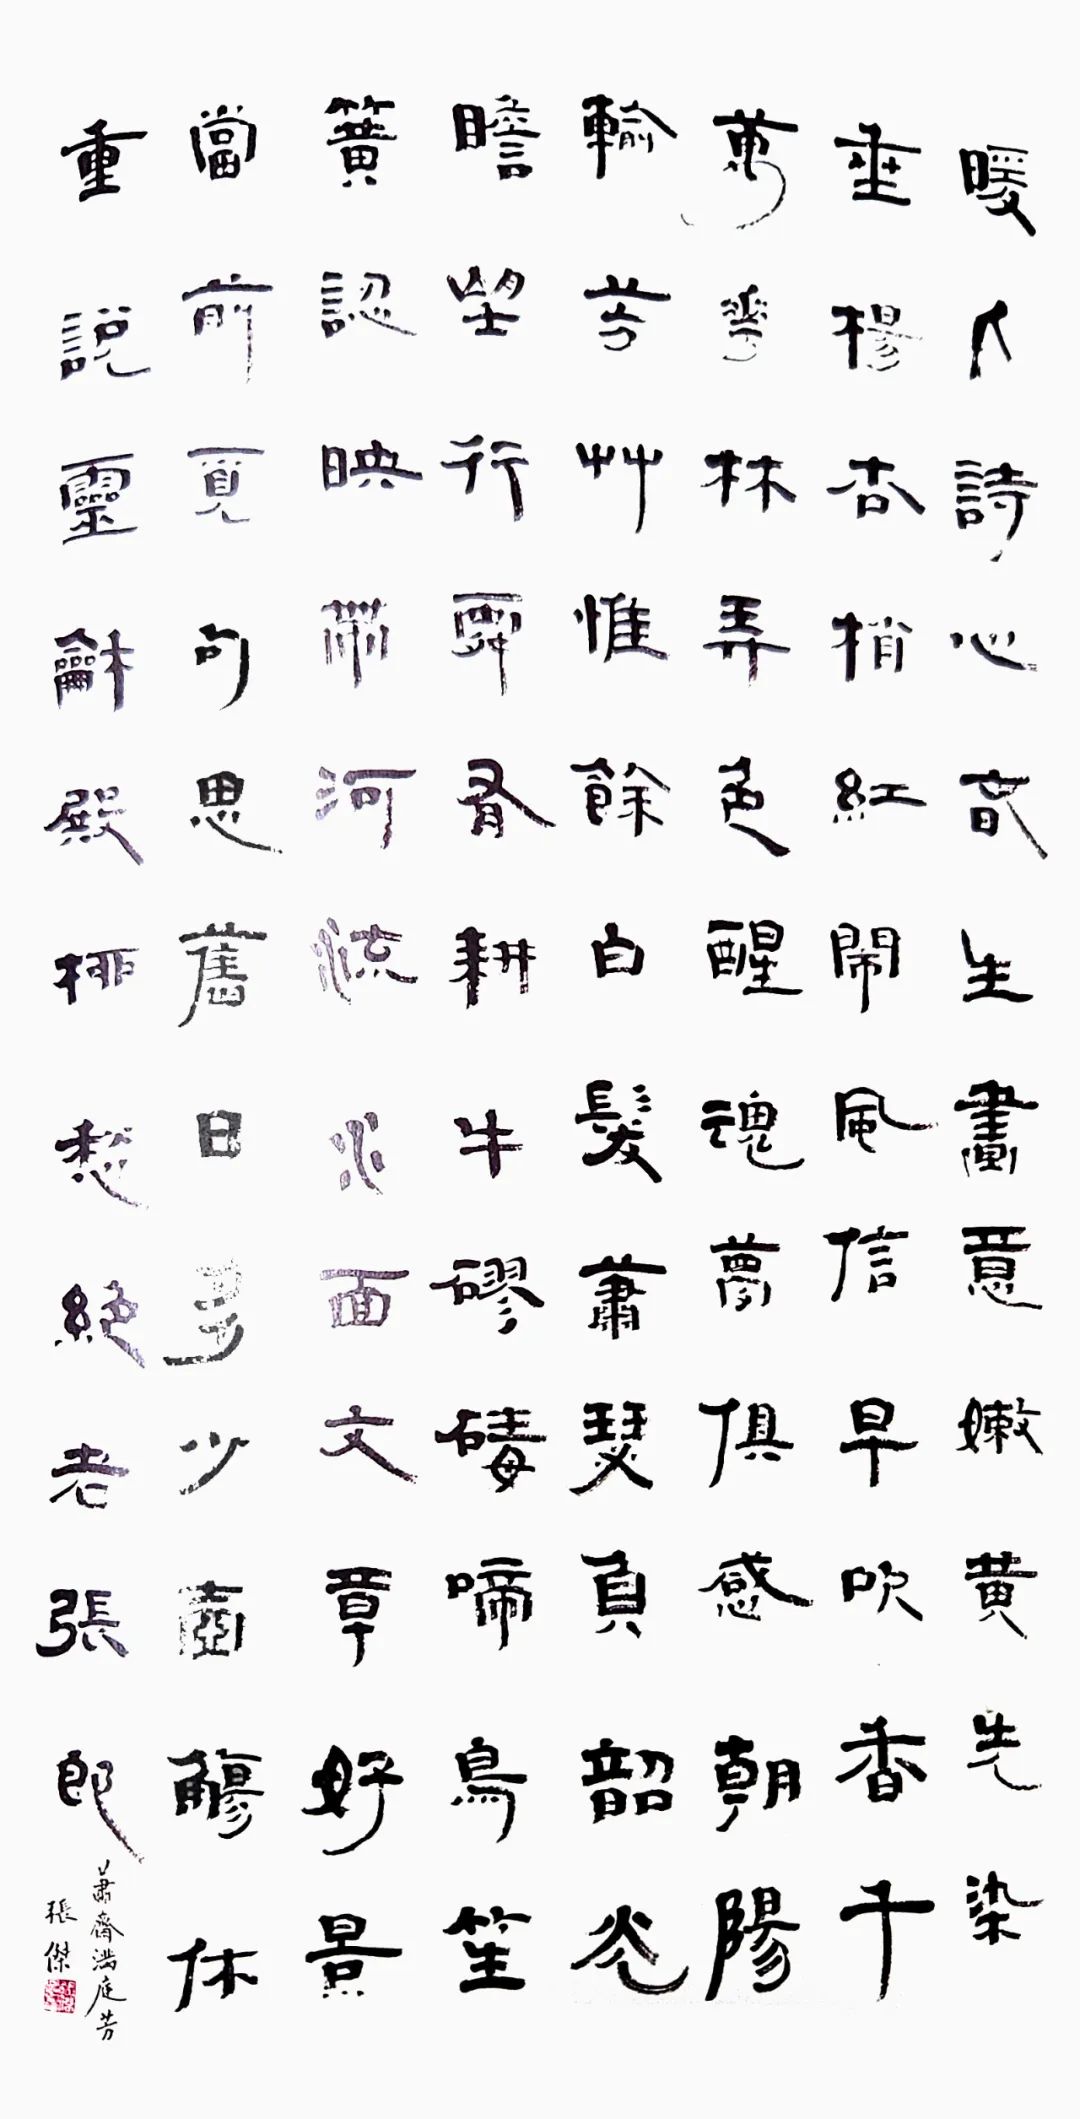 暖人詩心春生畫意嫩黄先染
垂楊杏梢紅鬧風信早吹香千
萬華林弄色醒魂夢俱感朝陽
輸芳艸惟餘白髮蕭瑟負韶光
瞻望行有耕牛磟碡啼鳥笙
簧認映帶河流水面文章好景
當前覓句思舊日多少壺觴休
重説靈龢殿柳愁絕老張郎
蕭齋滿庭芳
張傑